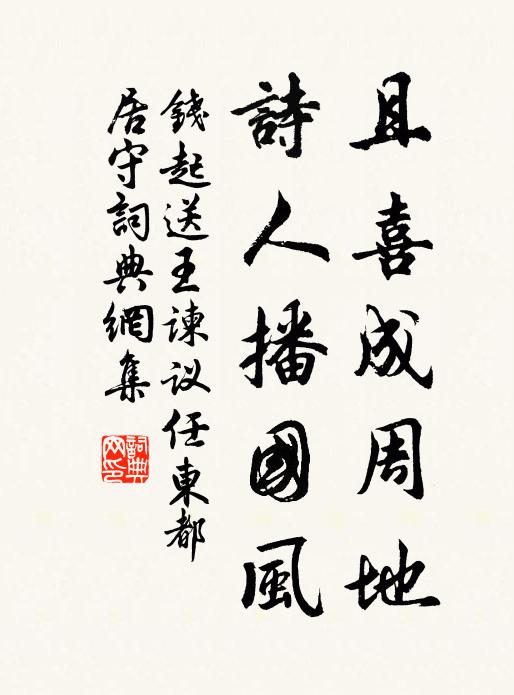 且喜成周地
詩人播國風
錢起送王諫议任東都
居守詞典網集
詞典
网印